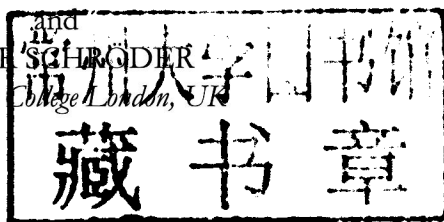 and
R SCHRÖDER
College London, UK
常州大学图书馆
藏书章